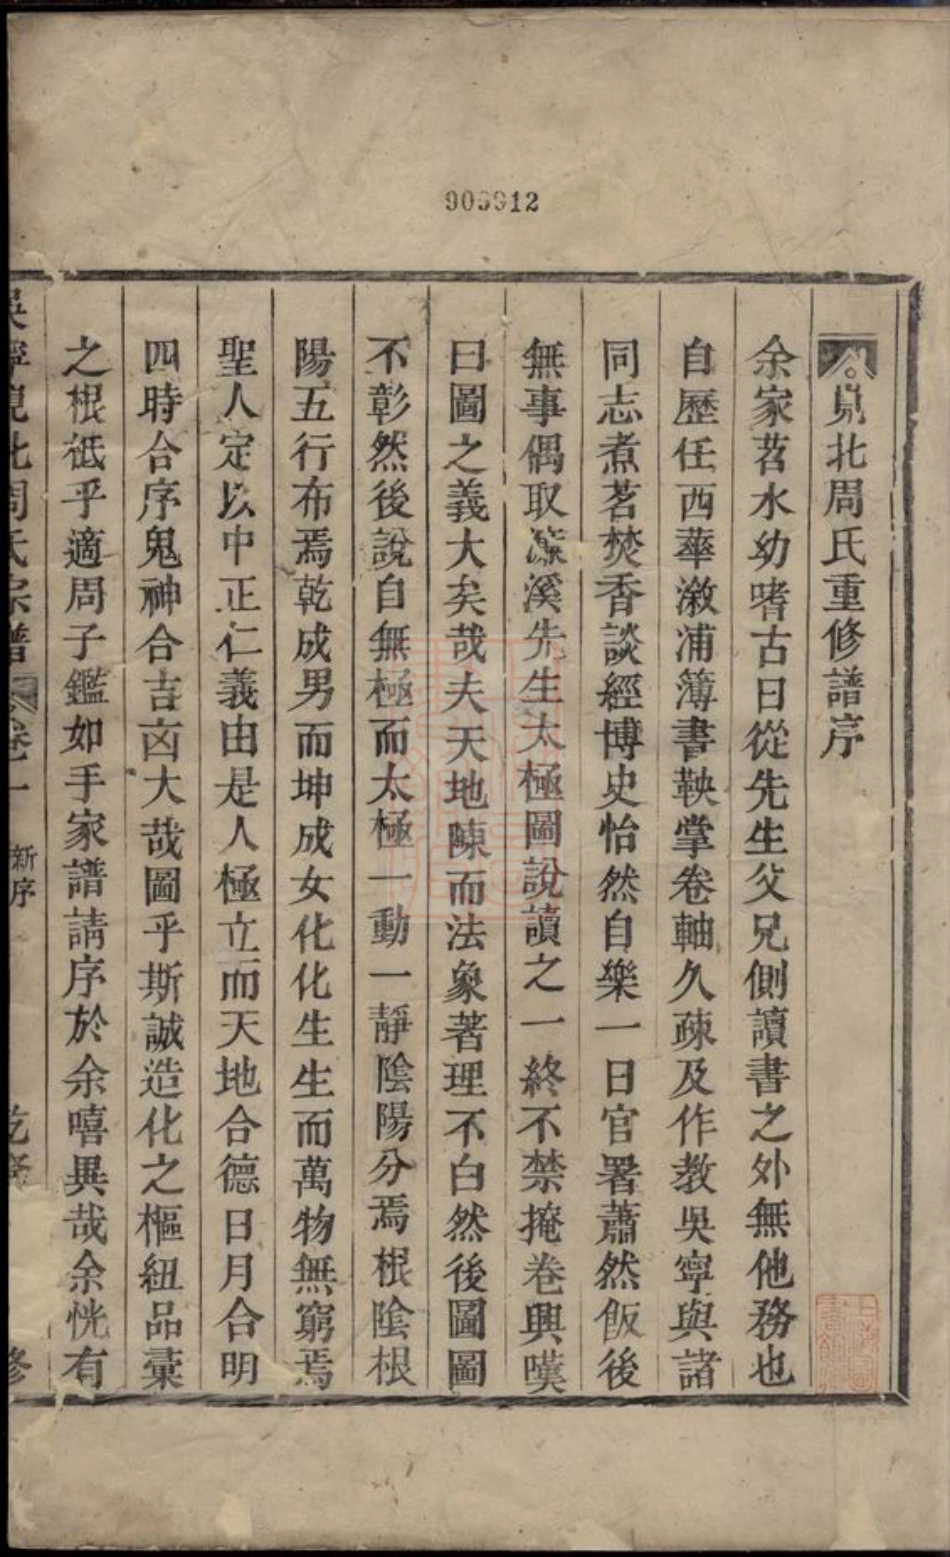 909912
峴北周氏重修譜序
余家苕水幼嗜古日從先生父兄側讀書之外無他務也
自歷任西華漵浦簿書鞅掌卷軸久疎及作教吳寧與諸
同志煮茗焚香談經博史怡然自樂一日官署蕭然飯後
無事偶取濂溪先生太極圖說讀之一終不禁掩卷興嘆
曰圖之義大矣哉夫天地陳而法象著理不白然後圖圖
不彰然後說自無極而太極一動一靜陰陽分焉根陰根
陽五行布焉乾成男而坤成女化化生生而萬物無窮焉
聖人定以中正仁義由是人極立而天地合德日月合明
四時合序鬼神合吉凶大哉圖乎斯誠造化之樞紐品彙
之根柢乎適周子鑑如手家譜請序於余嘻異哉余恍有
吳寧峴北周氏宗譜 卷一 新序 乾隆 修